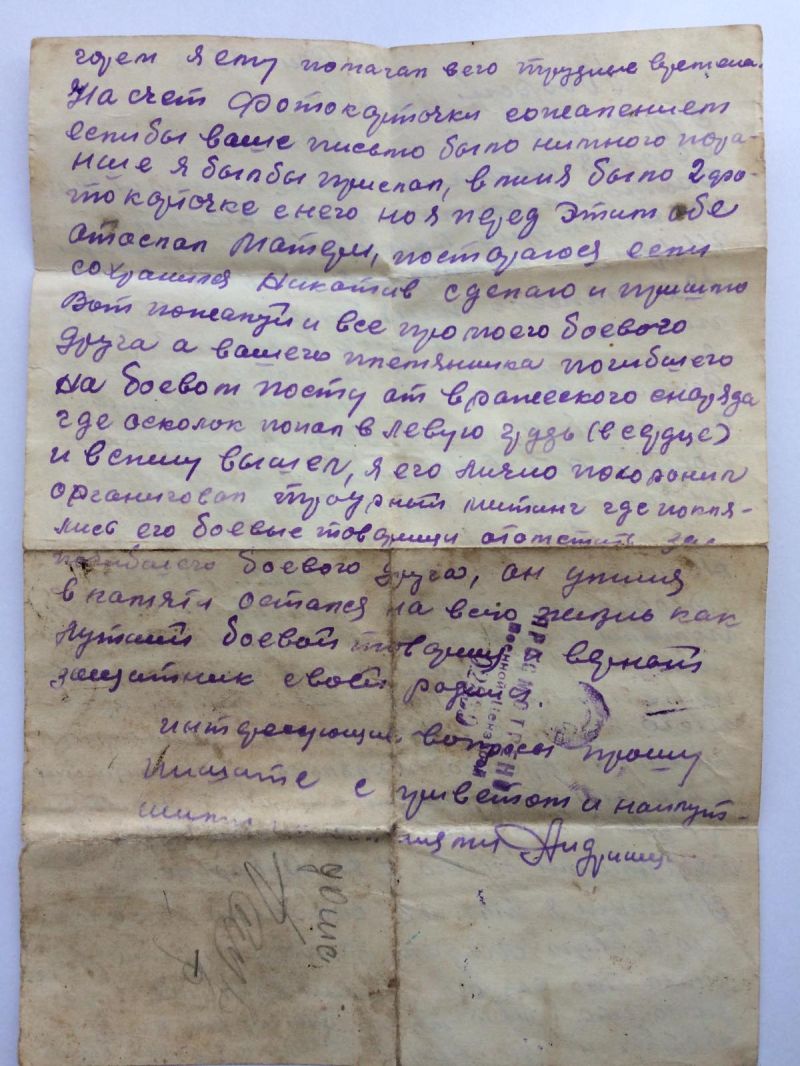 я ему помагал в его трудные времена.
На счет Фотокарточки сожалением
еслибы ваше письмо было нимного пора-
ньше я былбы прислал, в миня было 2 фо-
токарточке с него но я перед этим обе
отослал Матери, постораюся если
сохранился Никатив сделаю и пришлю
Вот пожалуй и все про моего боевого
друга а вашего племянника погибшего
на боевом посту от вражеского снаряда
где осколок попал в левую грудь (в сердце)
и в спину вышел, я его лично похоронил
организовал траурный митинг где покля-
лись его боевые товарищи отомстить за
погибшего боевого друга, он у миня
в памяти остался на всю жизнь как
лутший боевой товарищ верный
защитник своей родины.
интересующие вопросы прошу
пишите с приветом и наилут-
шими
ПРОСМОТРЕНО
Военной Цензурой